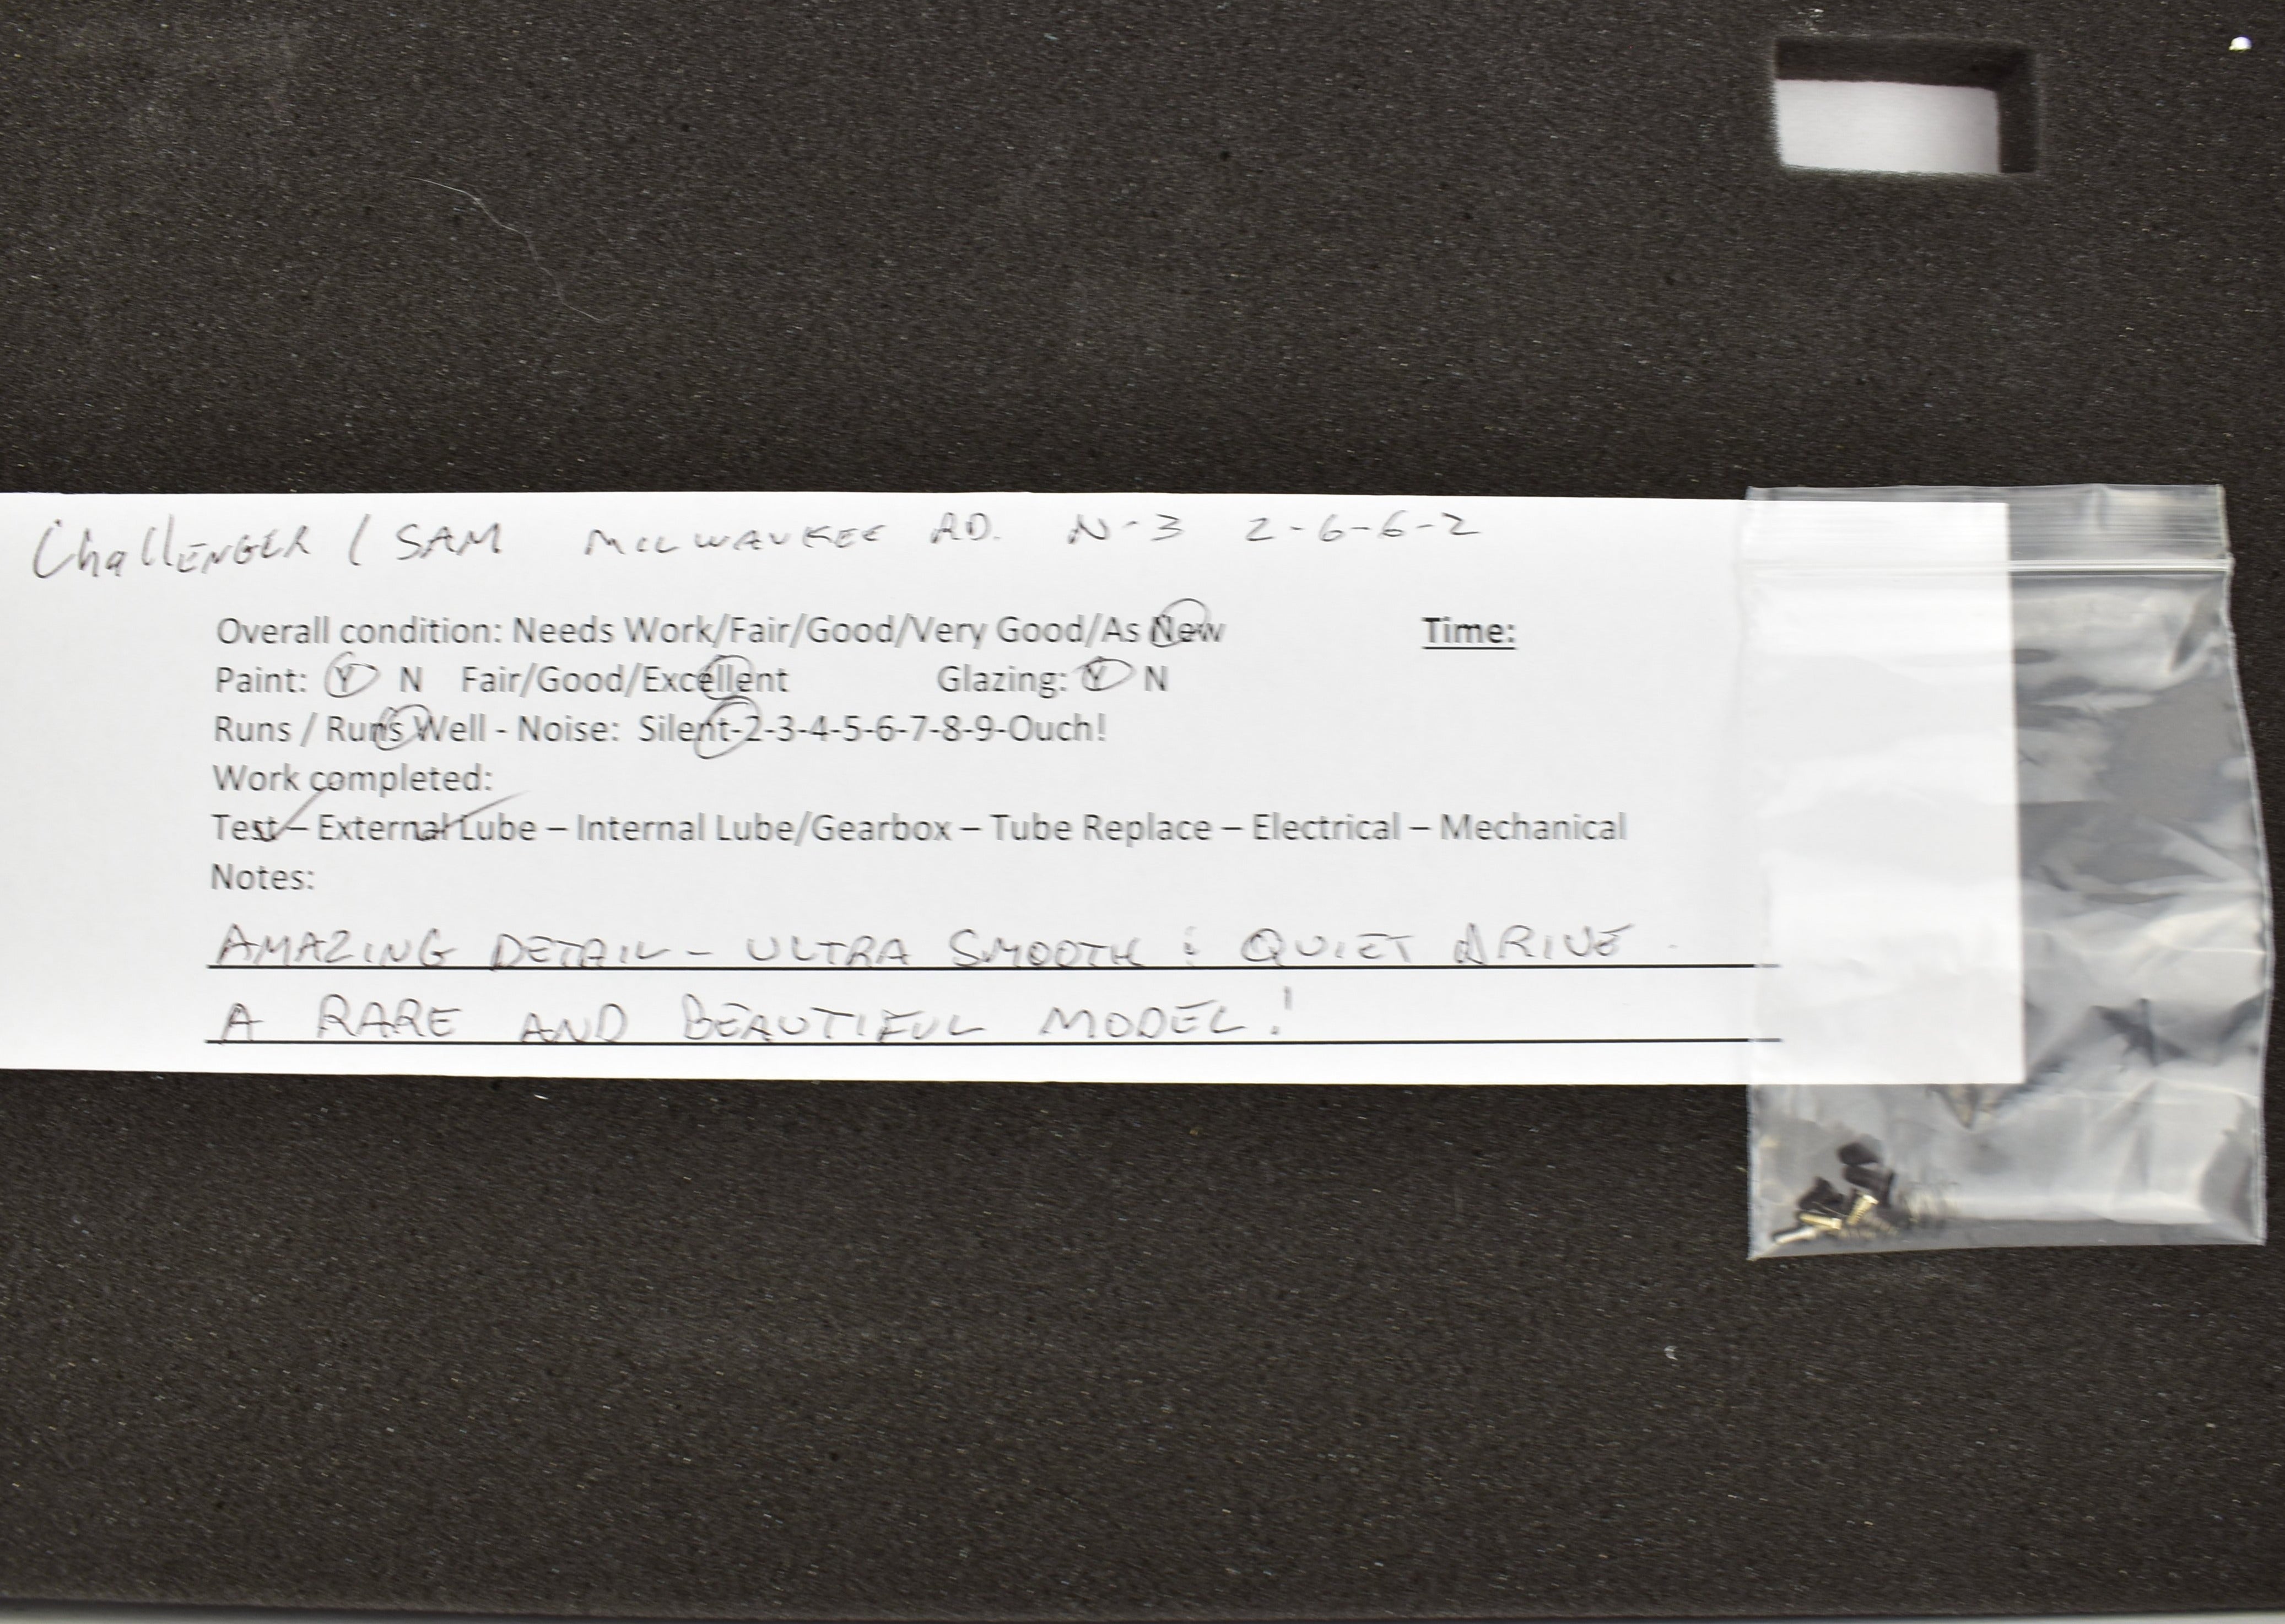 ChallENGER / SAM MILWAUKEE RD. N-3 2-6-6-2
Overall condition: Needs Work/Fair/Good/Very Good/As New Time:
Paint: Y N Fair/Good/Excellent Glazing: Y N
Runs / Runs Well - Noise: Silent-2-3-4-5-6-7-8-9-Ouch!
Work completed:
Test – External Lube – Internal Lube/Gearbox – Tube Replace – Electrical – Mechanical
Notes:
AMAZING DETAIL - ULTRA SMOOTH & QUIET DRIVE.
A RARE AND BEAUTIFUL MODEL!